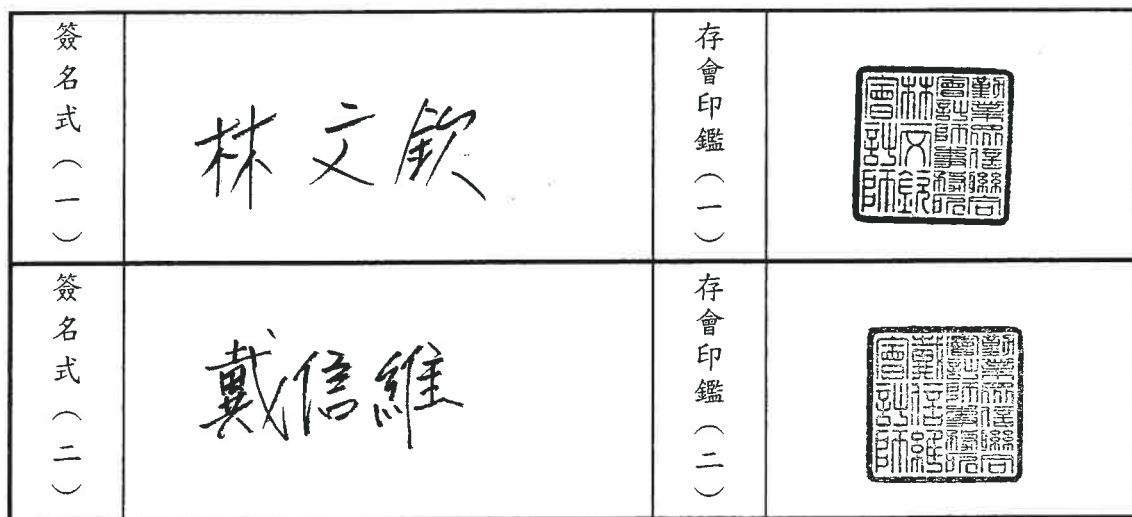 簽名式(一)
林文欽
存會印鑑(一)
勤業眾信聯合
會計師事務所
林文欽
會計師
簽名式(二)
戴信維
存會印鑑(二)
勤業眾信聯合
會計師事務所
戴信維
會計師